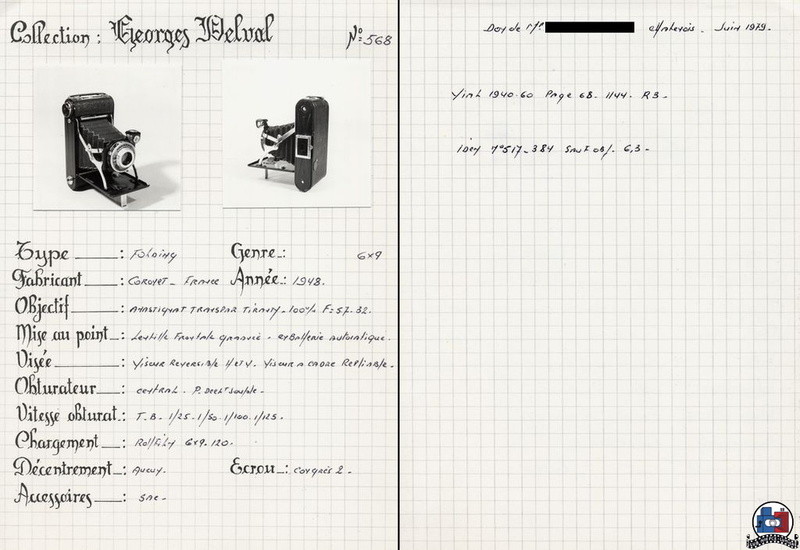 Collection : Georges Delval Nº 568
Type : Folding Genre : 6x9
Fabricant : Coronet - France Année : 1948.
Objectif : Anastigmat Transpar Tiranty - 100% F = 57. 32.
Mise au point : Lentille Frontale automatique.
Visée : Viseur Reversible H et V. Viseur a cadre Repliable.
Obturateur : central. P. souple.
Vitesse obturat. : T. B. 1/25. 1/50. 1/100. 1/125.
Chargement : Rollfilm 6x9. 120.
Décentrement : Aucun. Ecrou : Congrès 2.
Accessoires : Sac.
Don de Mr. Juin 1979.
1940-60 Page 68. 1144. R3.
Idem nº 517-384 Sauf obj. 6,3.